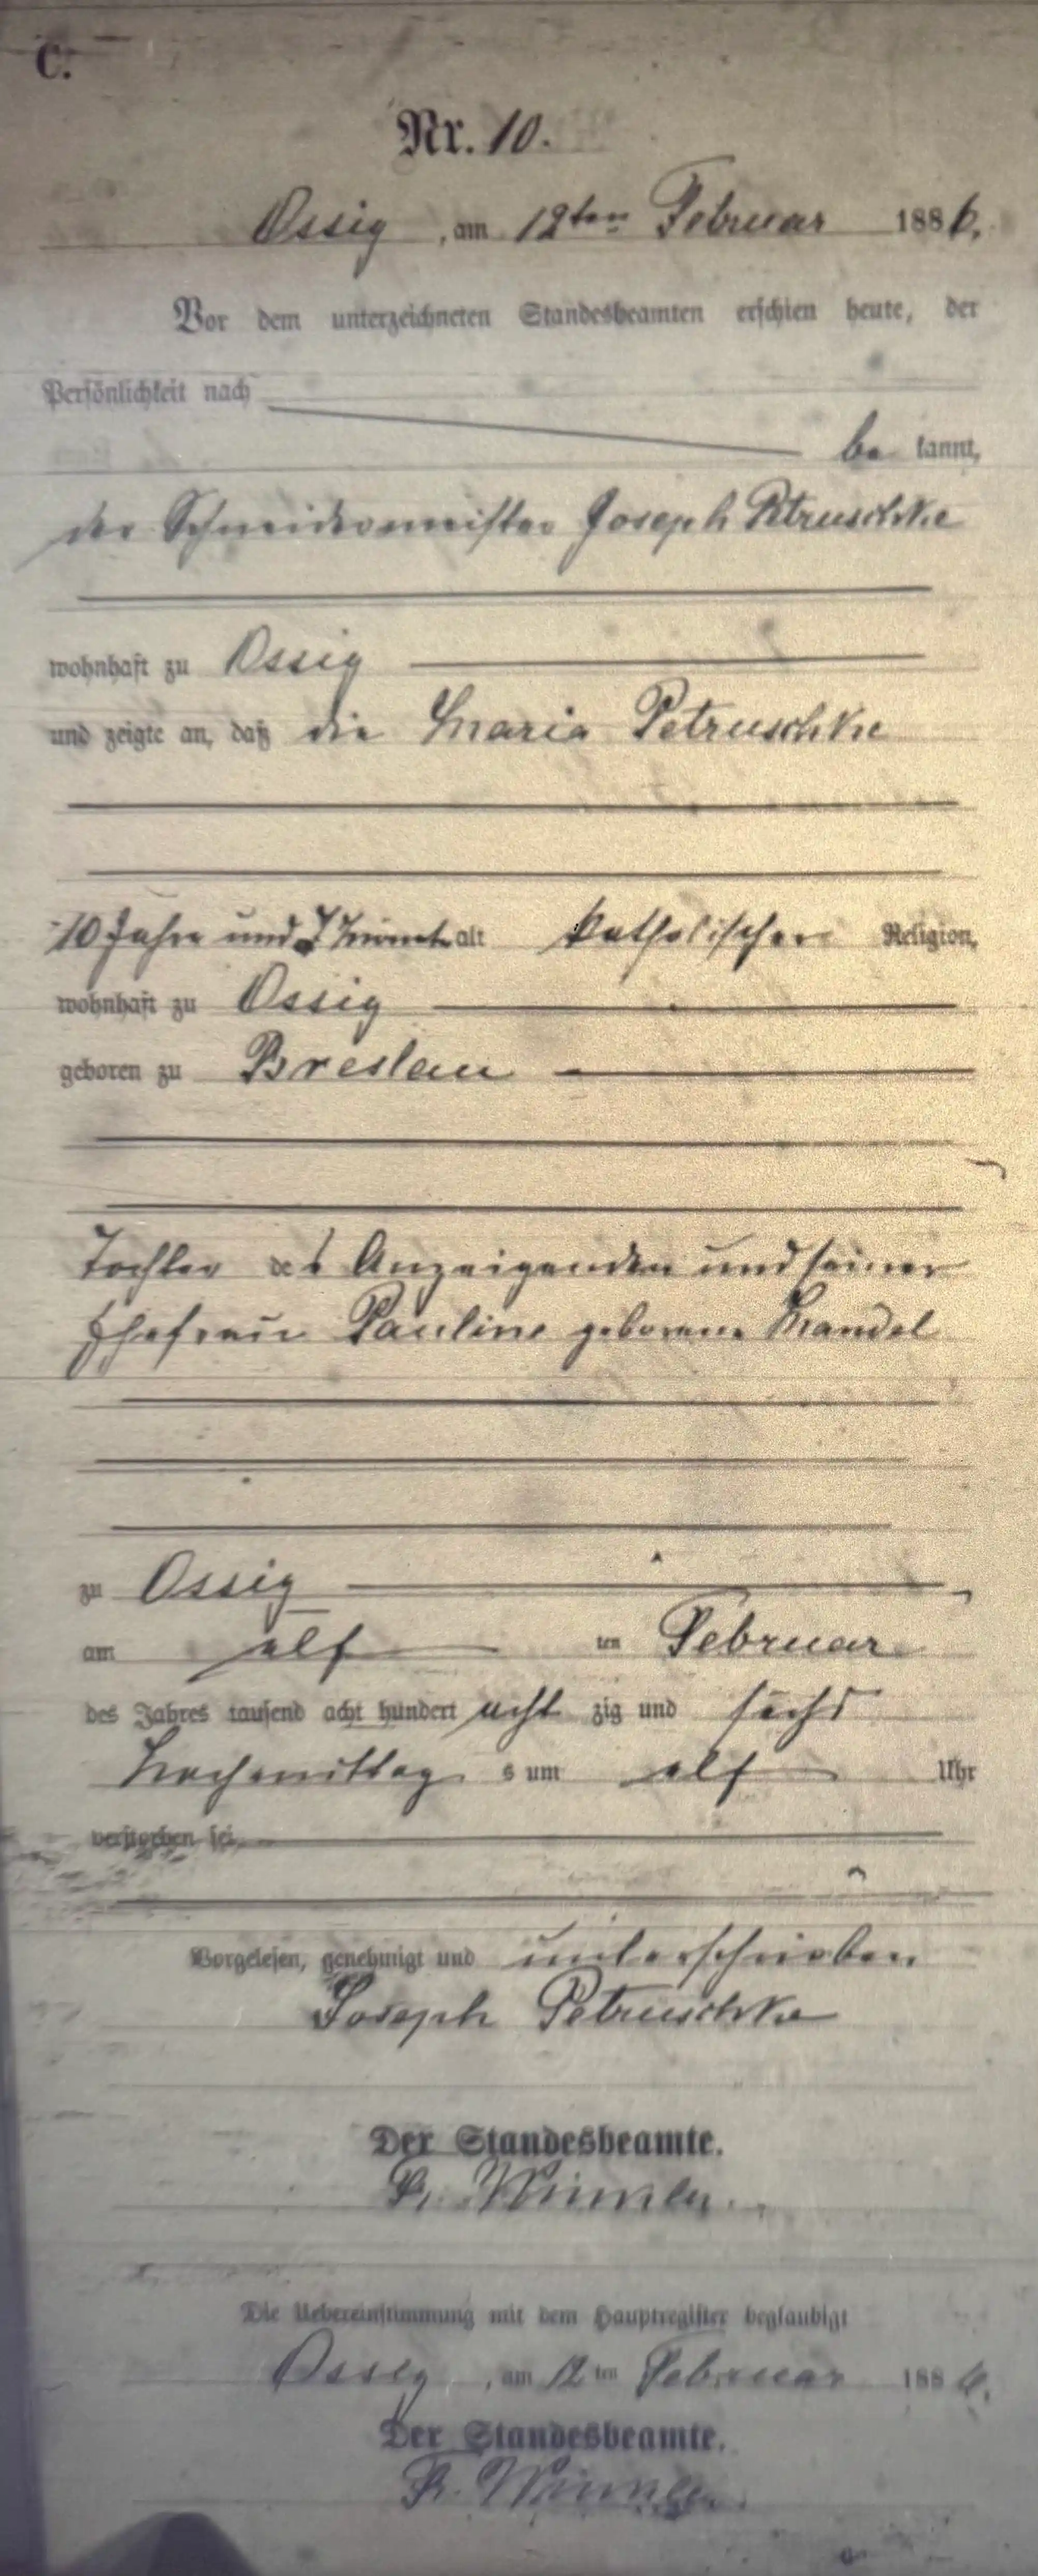 C.
Nr. 10.
Ossig, am 12ten Februar 1886.
Vor dem unterzeichneten Standesbeamten erschien heute, der
Persönlichkeit nach
be kannt,
der Schneidermeister Joseph Petruschke
wohnhaft zu Ossig
und zeigte an, daß die Maria Petruschke
10 Jahre und 7 Monate alt katholischer Religion,
wohnhaft zu Ossig
geboren zu Breslau
Tochter des Anzeigenden und seiner
Ehefrau Pauline geborene Mandel
zu Ossig
am elf ten Februar
des Jahres tausend acht hundert acht zig und sechs
Nachmittag s um elf Uhr
verstorben sei
Vorgelesen, genehmigt und unterschrieben
Joseph Petruschke
Der Standesbeamte.
Die Uebereinstimmung mit dem Hauptregister beglaubigt
Ossig, am 12 ten Februar 1886.
Der Standesbeamte.